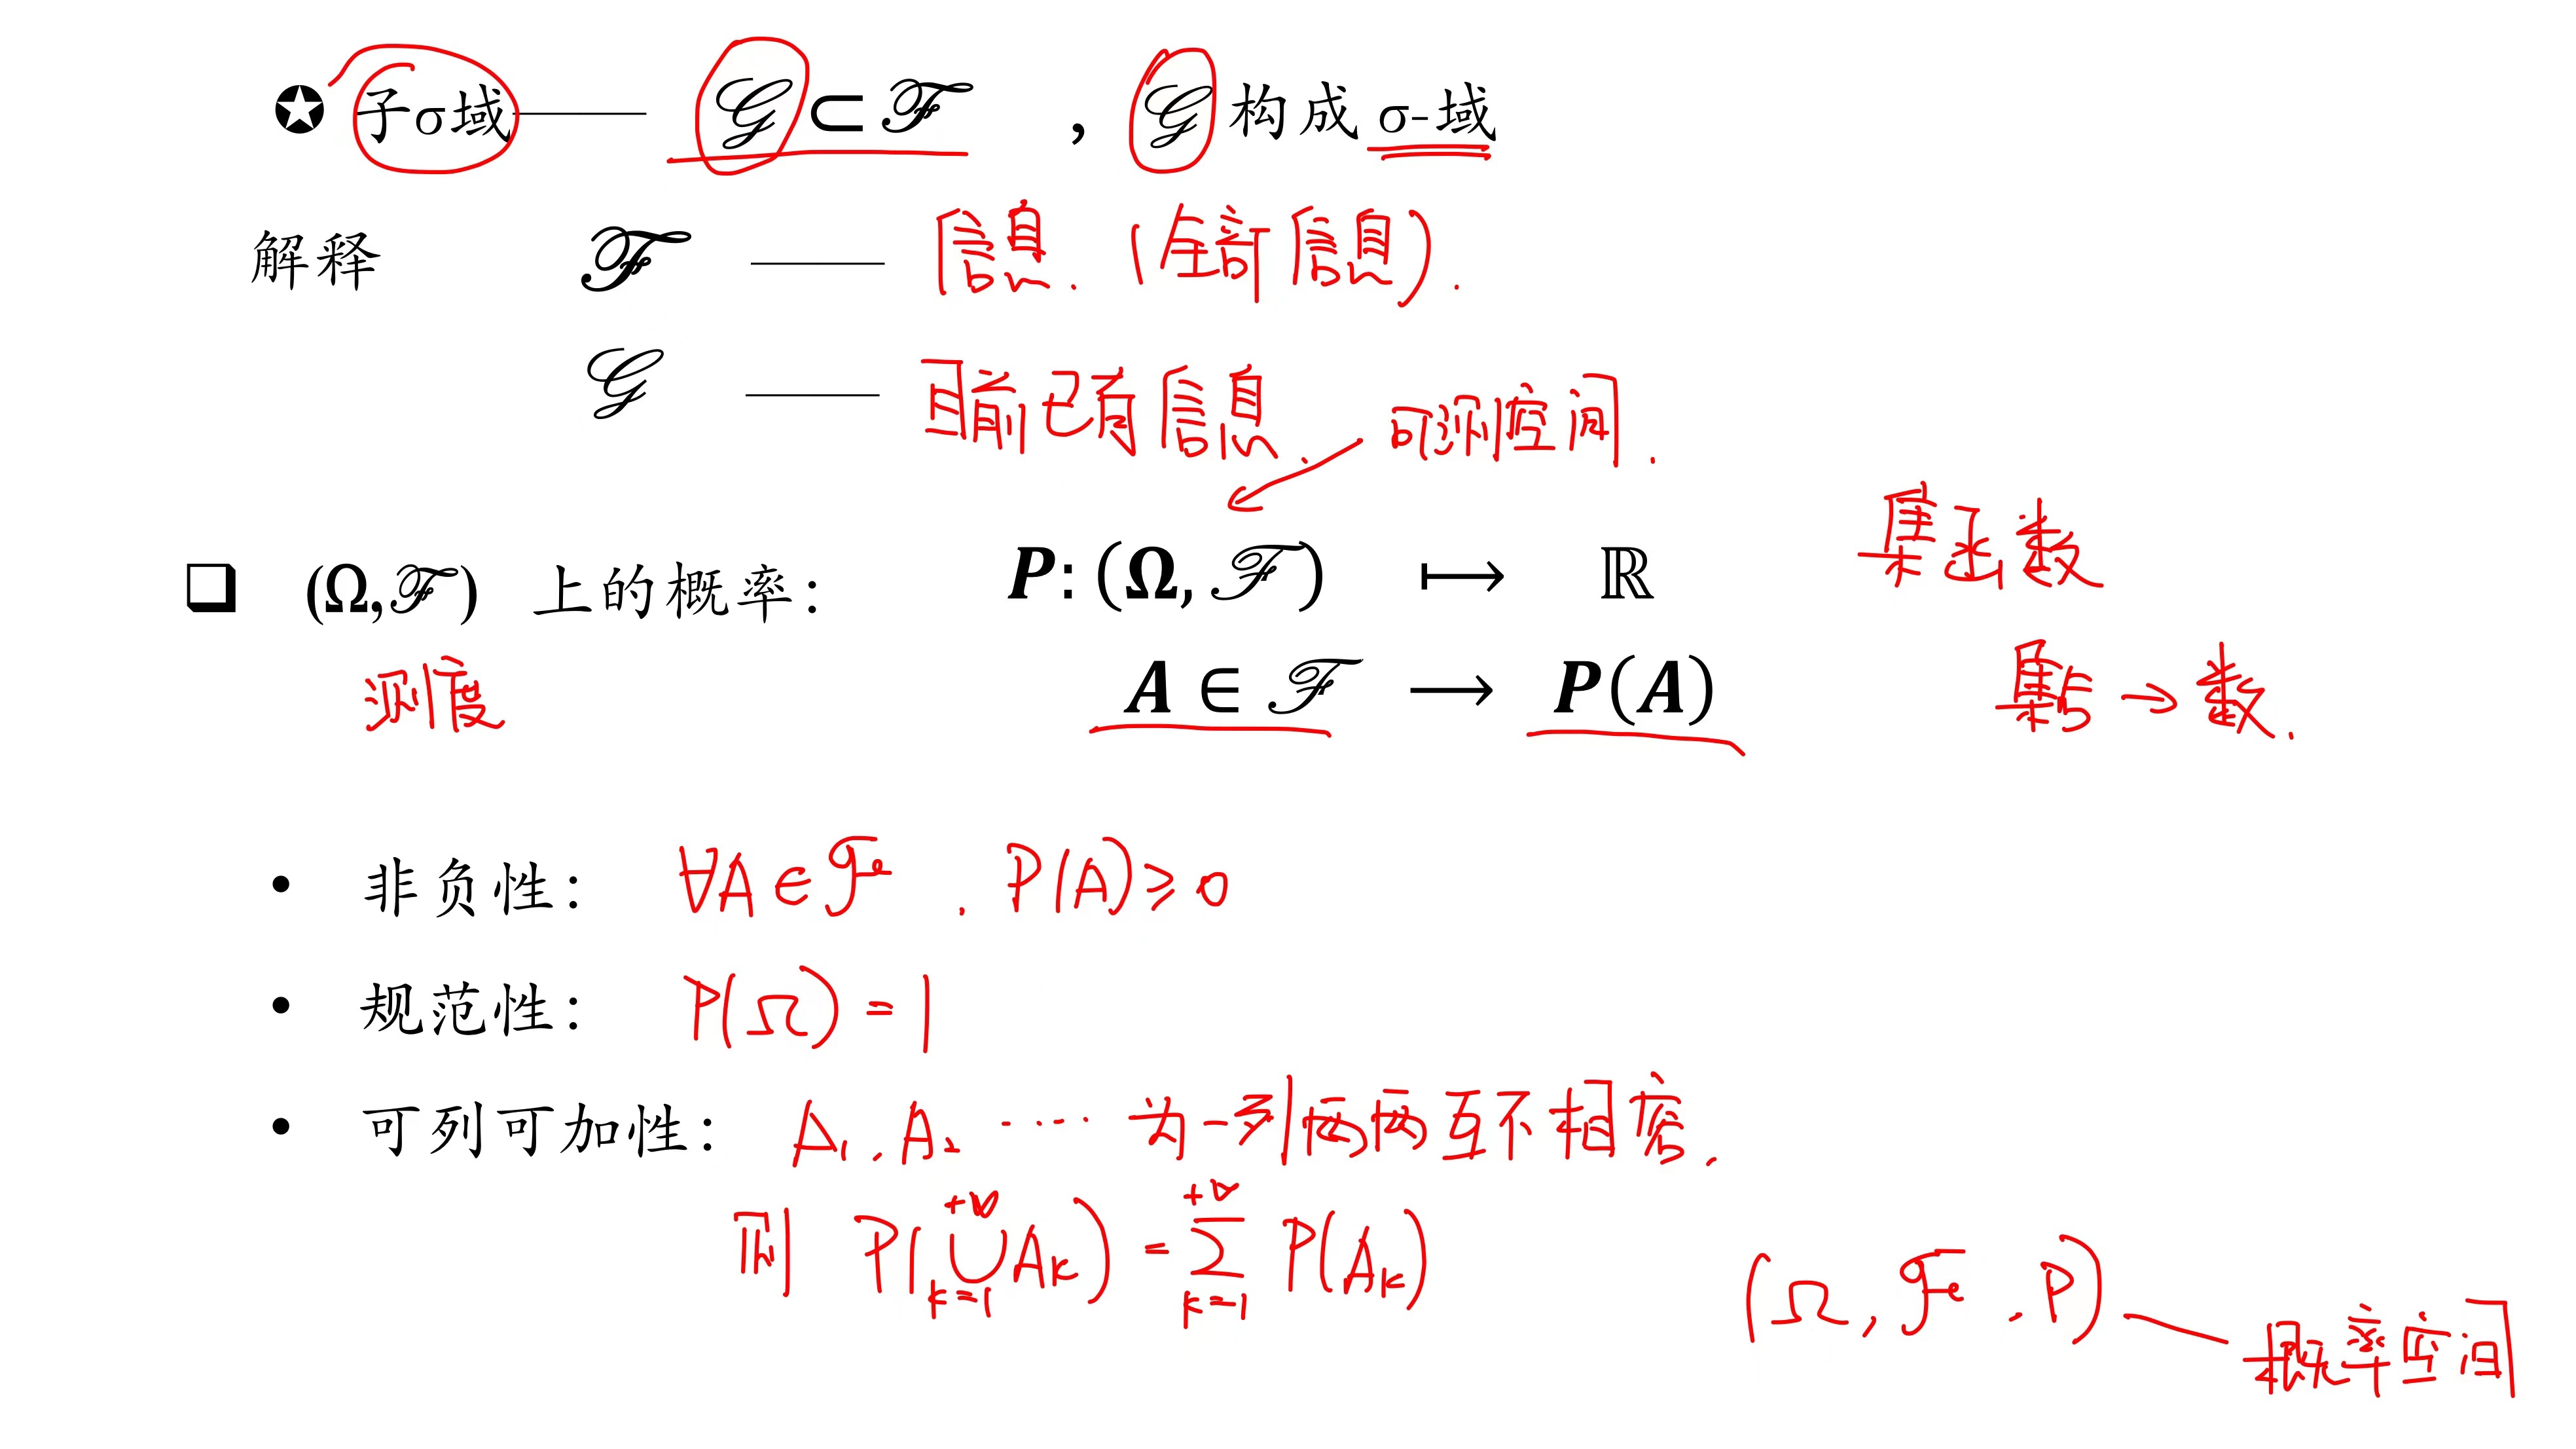 ✪ 子σ域—— 𝒢 ⊂ ℱ , 𝒢 构成 σ-域
解释 ℱ —— 信息. (全部信息).
𝒢 —— 目前已有信息. 可测空间.
❑ (Ω,ℱ) 上的概率: P: (Ω, ℱ) ↦ ℝ 集函数
测度 A ∈ ℱ ⟶ P(A) 集合 → 数.
• 非负性: ∀A ∈ ℱ. P(A) ⩾ 0
• 规范性: P(Ω) = 1
• 可列可加性: A₁, A₂ ···· 为一列两两互不相容.
则 P(⋃_{k=1}^{+∞} A_k) = ∑_{k=1}^{+∞} P(A_k)
(Ω, ℱ, P) — 概率空间